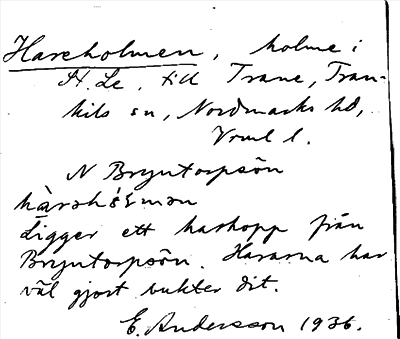 Hareholmen, holme i
St. Le, till Trane, Tran-
kils sn, Nordmarks hd,
Vrml l.
N Bryntorpsön
ligger ett harhopp från
Bryntorpsön. Hararna har
väl gjort bukter dit.
E. Andersson 1936.